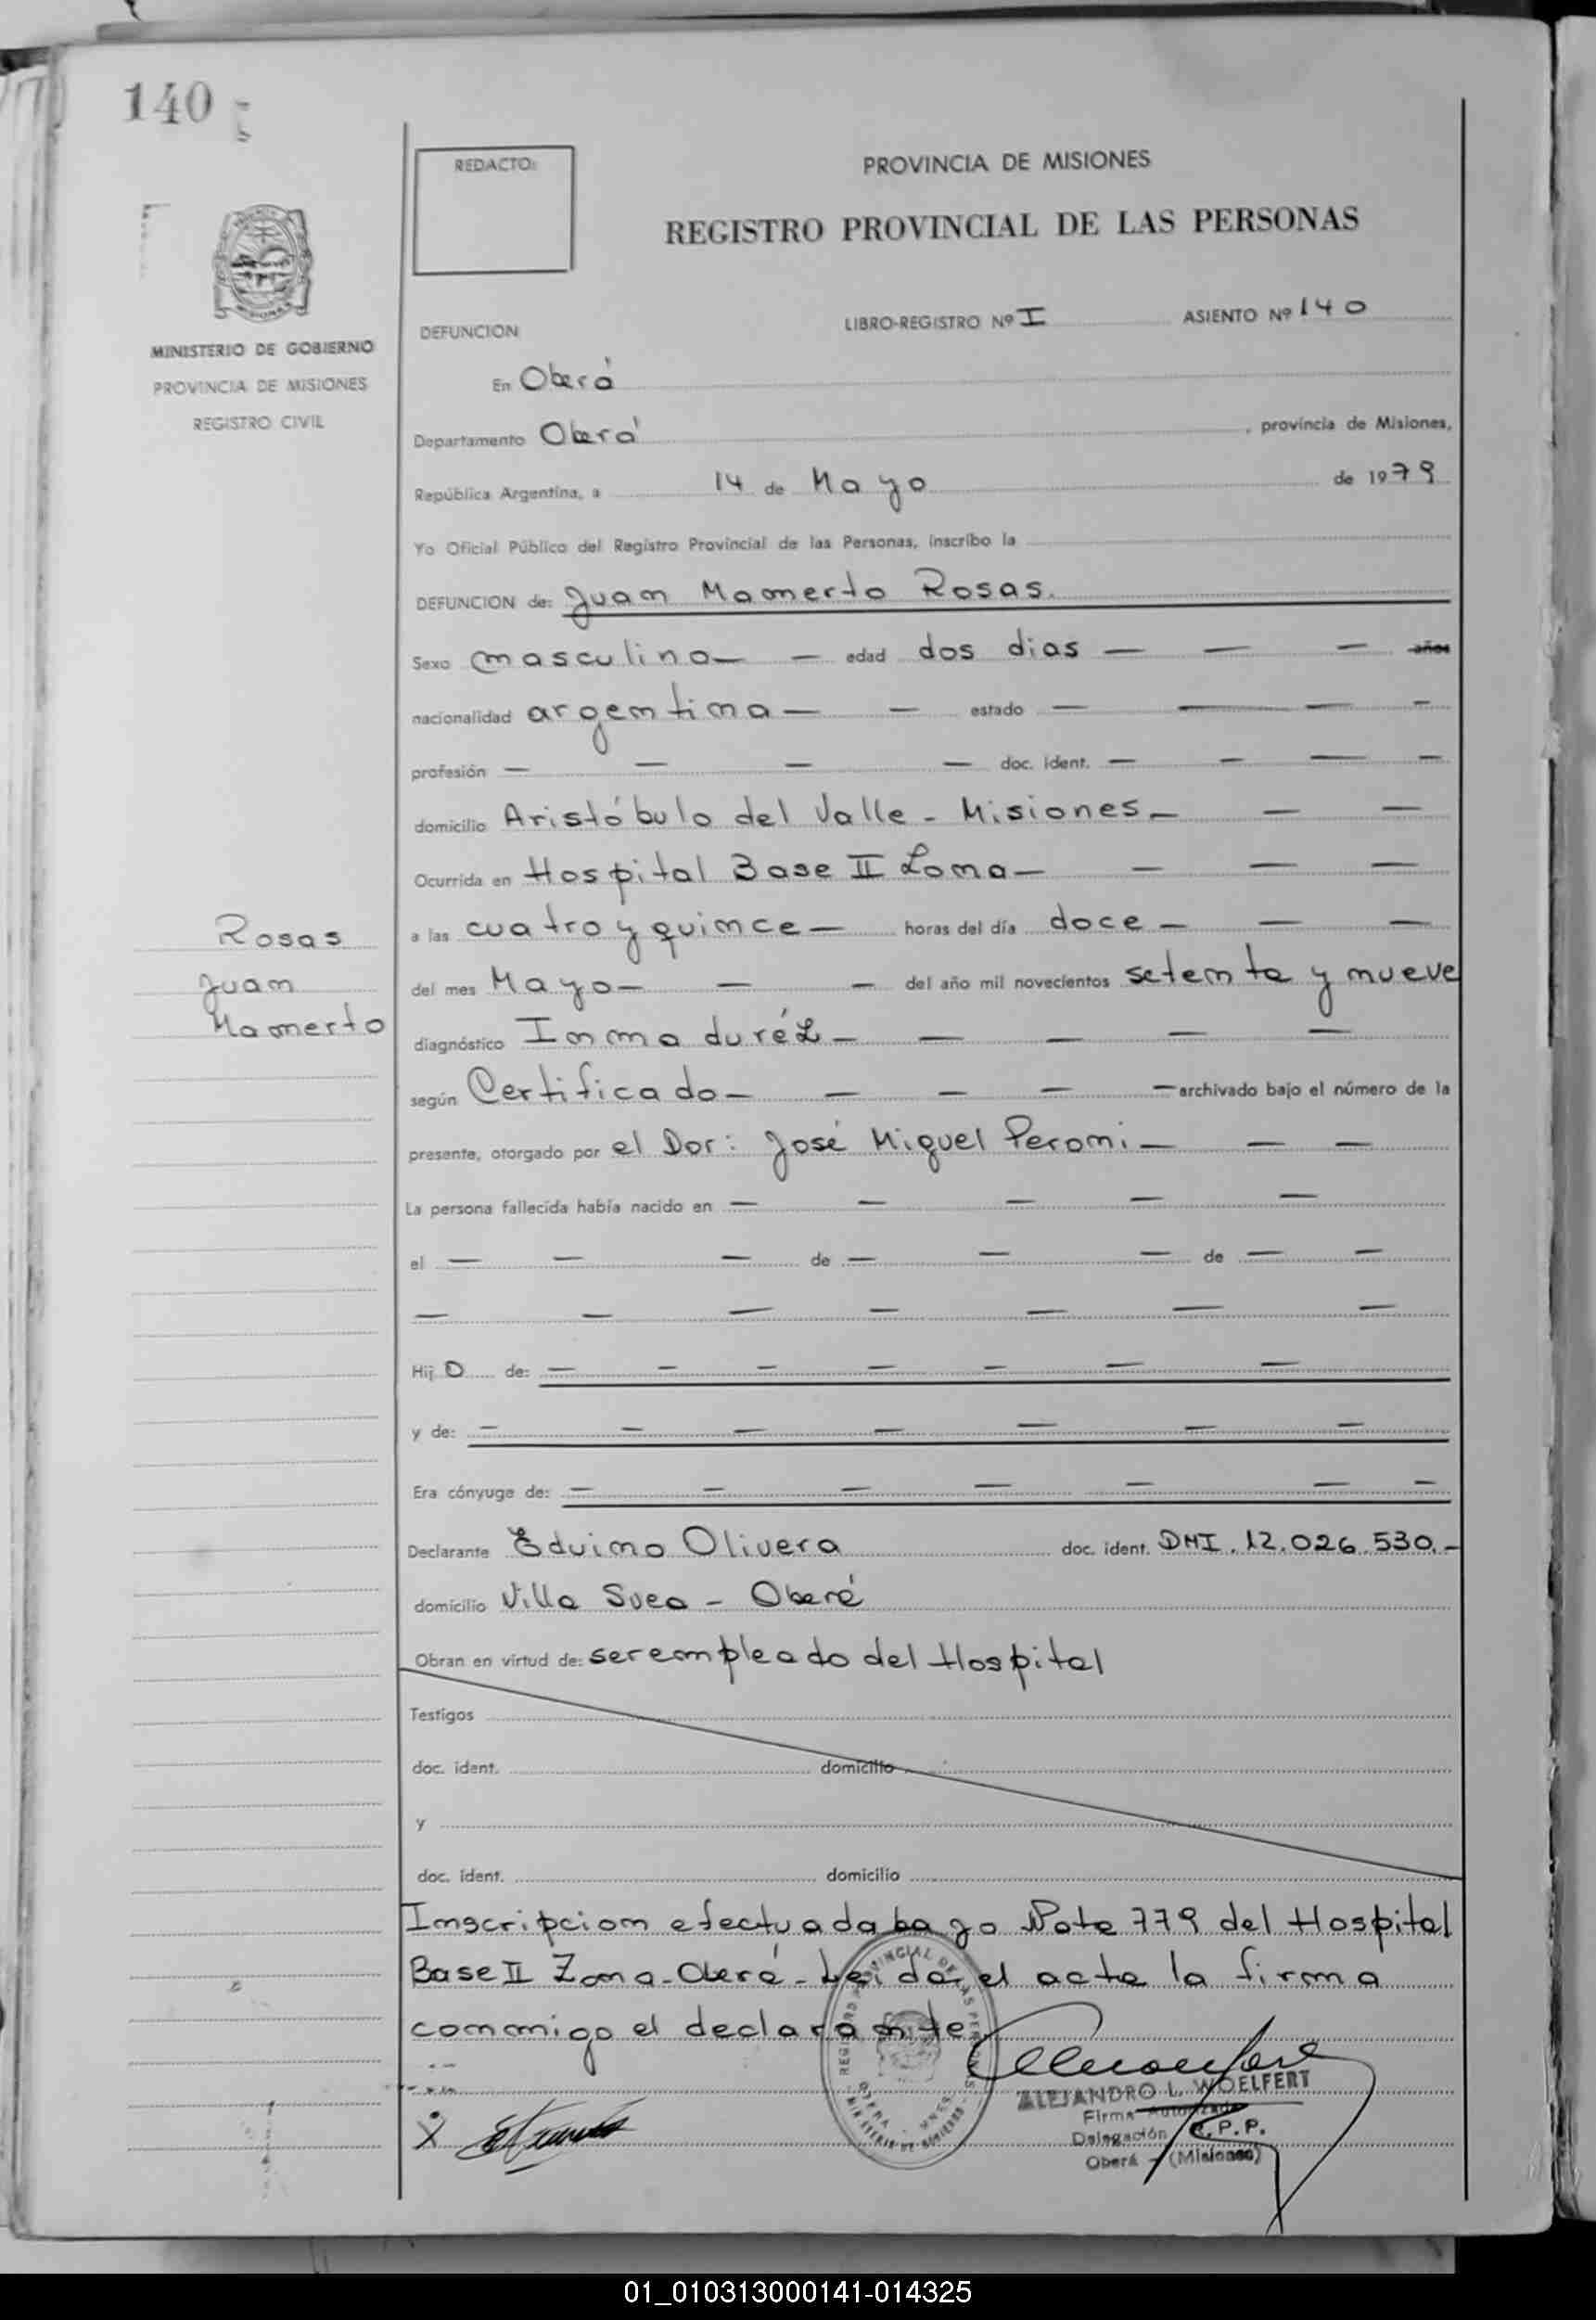 140
REDACTO:
PROVINCIA DE MISIONES
REGISTRO PROVINCIAL DE LAS PERSONAS
MINISTERIO DE GOBIERNO
PROVINCIA DE MISIONES
REGISTRO CIVIL
DEFUNCION LIBRO-REGISTRO Nº I ASIENTO Nº 140
En Oberá
Departamento Oberá, provincia de Misiones,
República Argentina, a 14 de Mayo de 1979
Yo Oficial Público del Registro Provincial de las Personas, inscribo la
DEFUNCION de: Juan Mamerto Rosas.
Sexo masculino — — edad dos dias — — — años
nacionalidad argentina — — estado — — — —
profesión — — — — doc. ident. — — — —
domicilio Aristóbulo del Valle - Misiones — — —
Ocurrida en Hospital Base II Zona — — — —
a las cuatro y quince — horas del día doce — — —
del mes Mayo — — — del año mil novecientos setenta y nueve
diagnóstico Inmaduréz — — — — —
según Certificado — — — — — archivado bajo el número de la
presente, otorgado por el Dor: José Miguel Peroni — — —
La persona fallecida había nacido en — — — — —
el — — — de — — — de — —
— — — — — — —
Hij o de: — — — — — — —
y de: — — — — — — —
Era cónyuge de: — — — — — — —
Rosas
Juan
Mamerto
Declarante Eduino Olivera doc. ident. DNI. 12.026.530.-
domicilio Villa Svea - Oberá
Obran en virtud de: ser empleado del Hospital
Testigos
doc. ident. domicilio
y
doc. ident. domicilio
Inscripcion efectuada bajo Nota 779 del Hospital
Base II Zona - Oberá - Leída el acta la firma
conmigo el declarante
REGISTRO PROVINCIAL DE LAS PERSONAS
MINISTERIO DE GOBIERNO
ALEJANDRO L. WOELFERT
Firma Autorizada
Delegación R.P.P.
Oberá - (Misiones)
X
01_010313000141-014325